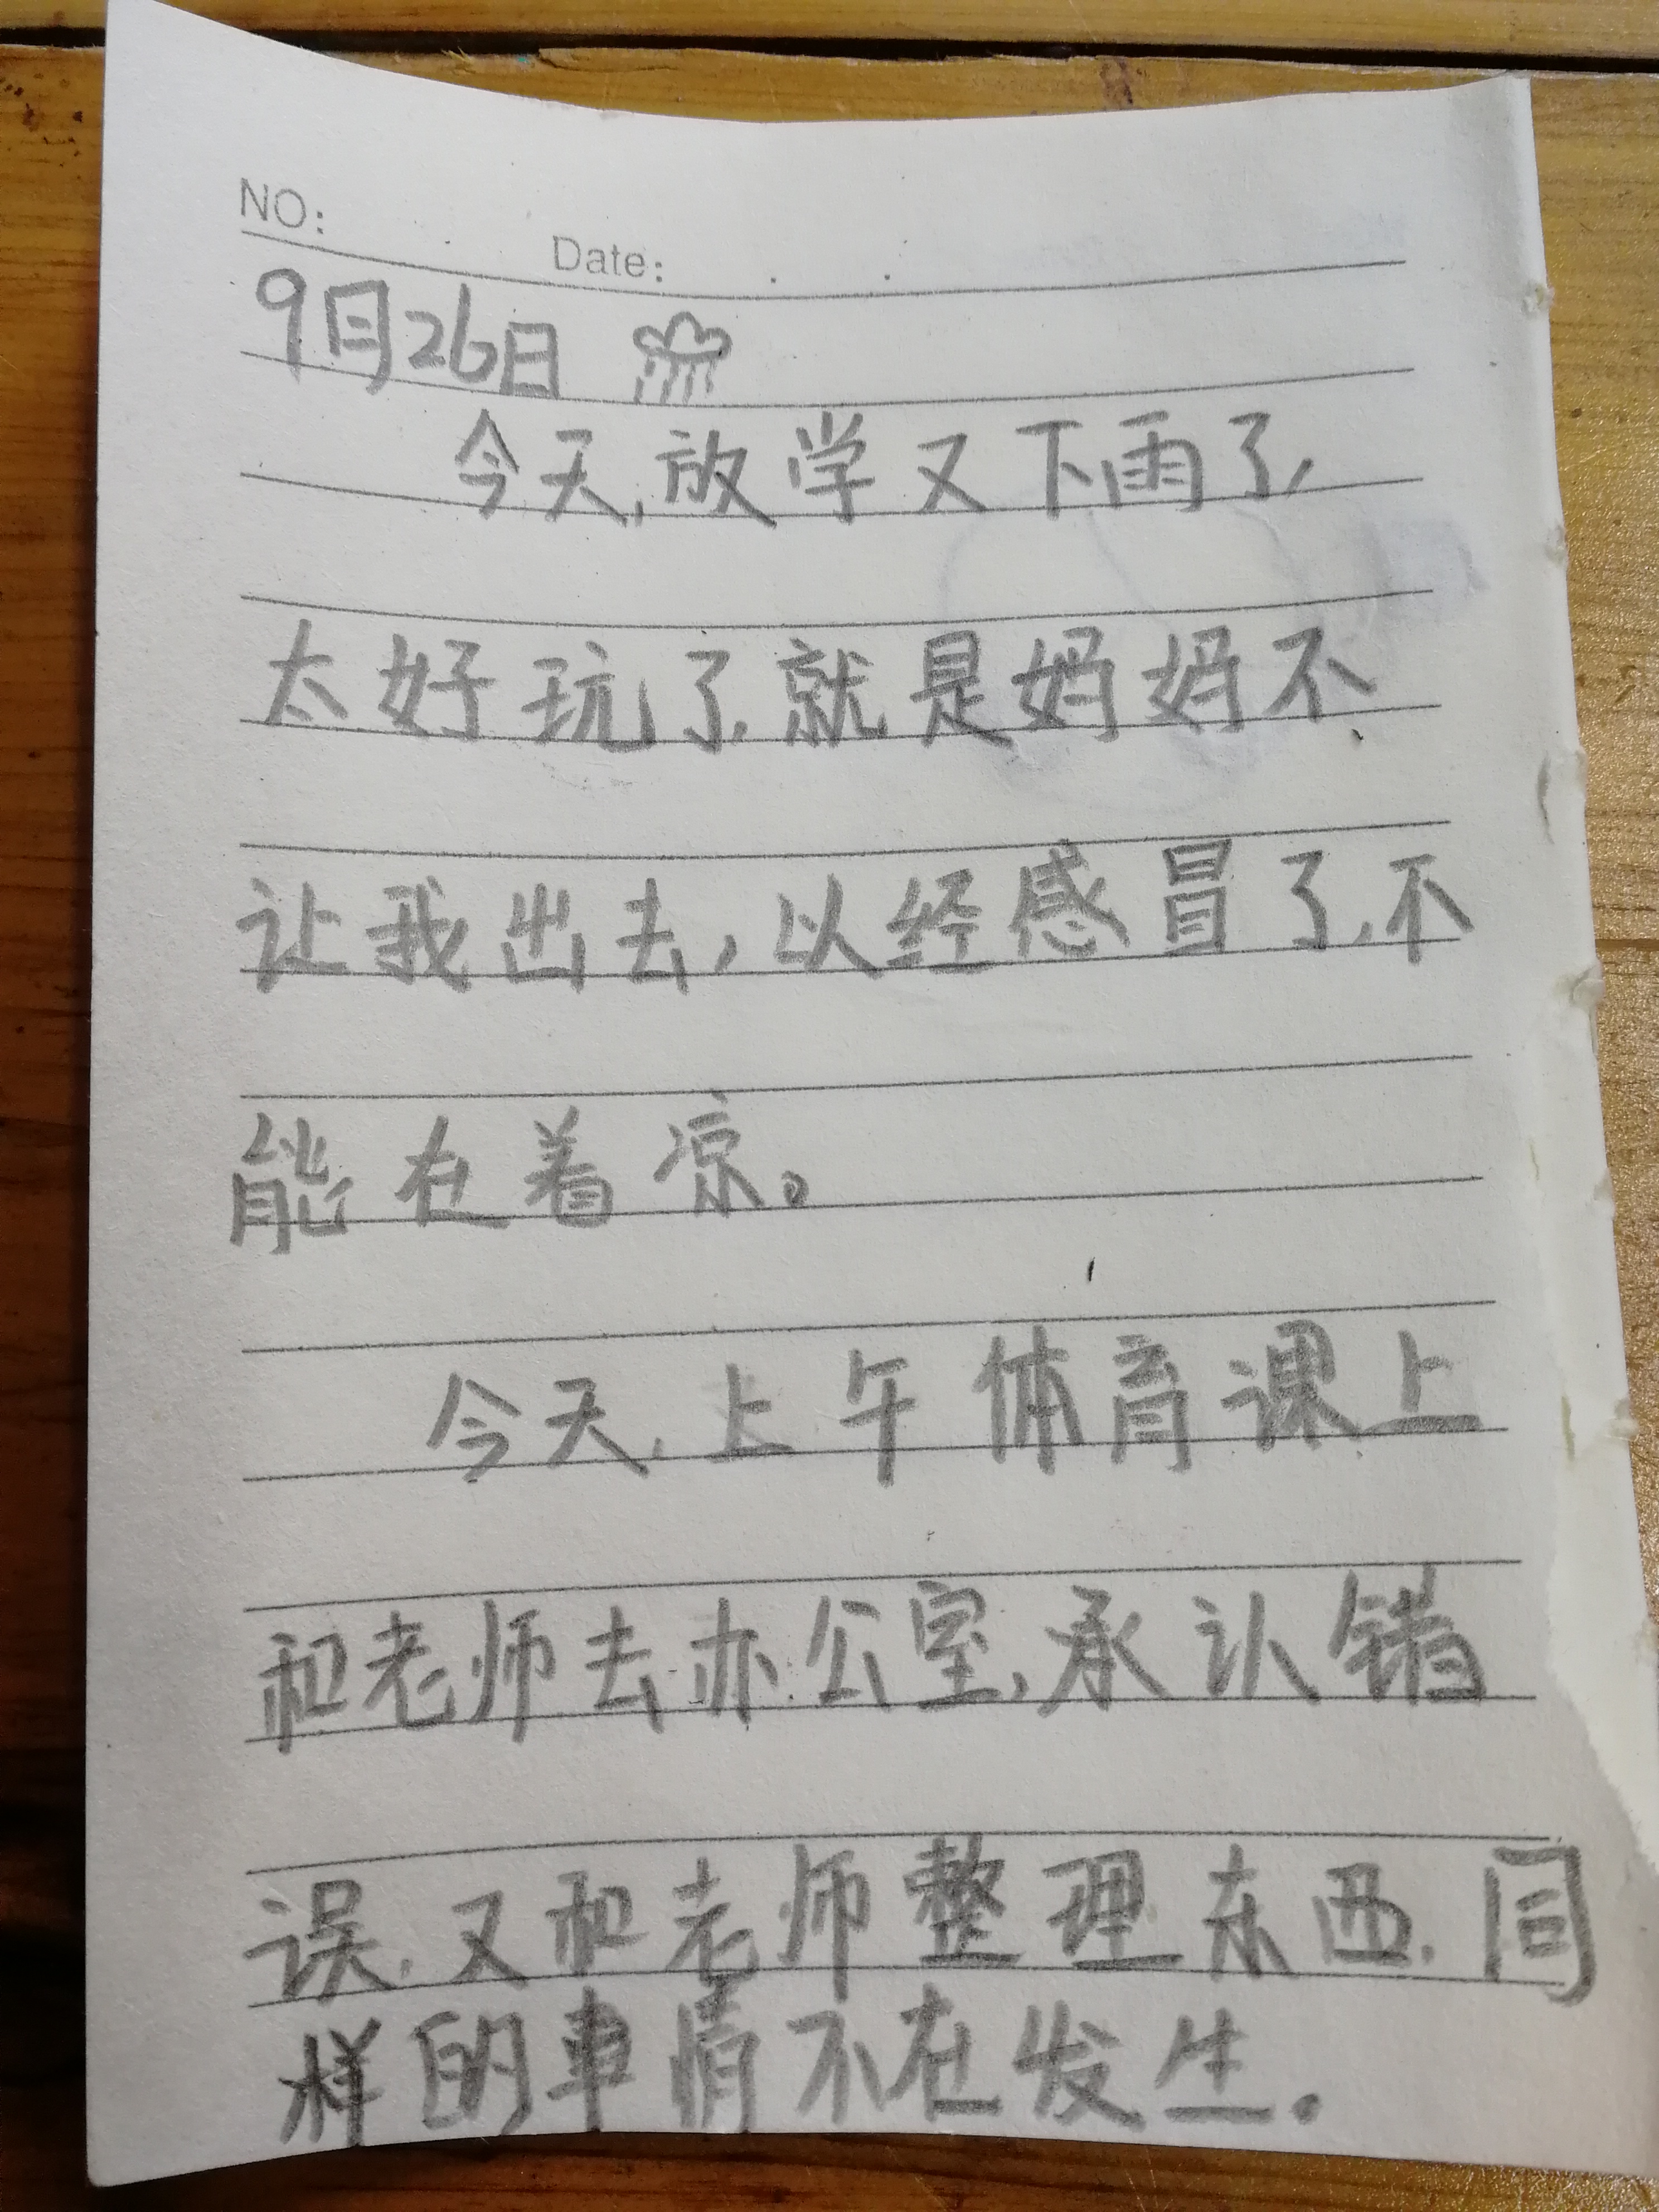 NO:
Date:
9月26日
今天,放学又下雨了,
太好玩了,就是妈妈不
让我出去,以经感冒了,不
能在着凉。
今天,上午体育课上
和老师去办公室,承认错
误,又和老师整理东西,同
样的事情不在发生.